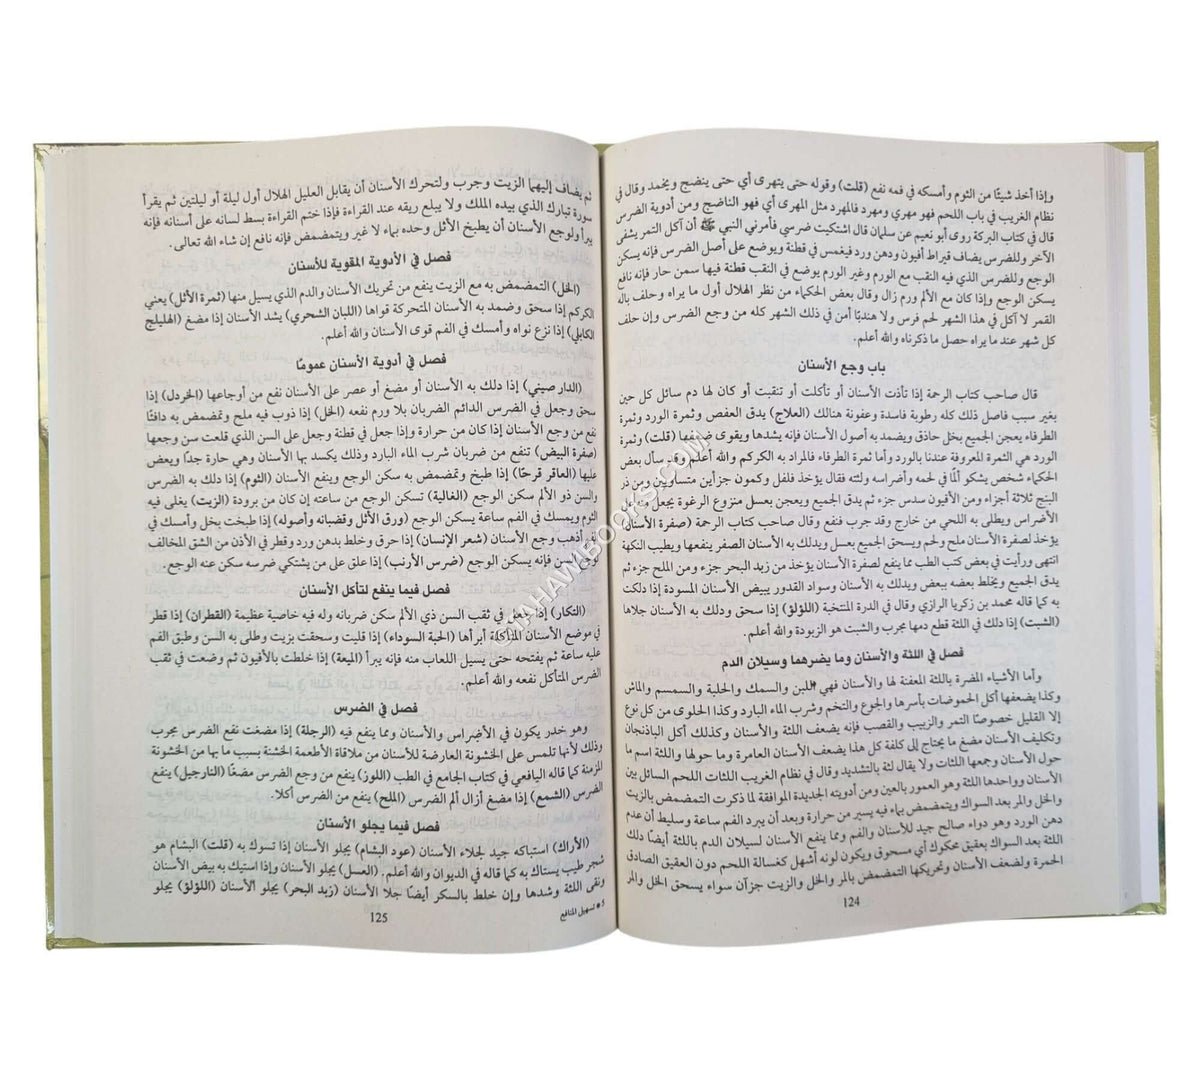 وإذا أخذ شيئًا من الثوم وأمسكه في فمه نفع (قلت) وقوله حتى يتهرى أي حتى ينضج ويخمد وقال في
نظام الغريب في باب اللحم فهو مهري ومهرد فالمهرد مثل المهرى أي فهو الناضج ومن أدوية الضرس
قال في كتاب البركة روى أبو نعيم عن سلمان قال اشتكيت ضرسي فأمرني النبي ﷺ أن آكل التمر يشفى
الآخر وللضرس يضاف قيراط أفيون ودهن ورد فيغمس في قطنة ويوضع على أصل الضرس فإنه يسكن
الوجع وللضرس الذي فيه النقب مع الورم وغير الورم يوضع في النقب قطنة فيها سمن حار فإنه نافع
يسكن الوجع وإذا كان مع الألم ورم زال وقال بعض الحكماء من نظر الهلال أول ما يراه وحلف باله
القمر لا آكل في هذا الشهر لحم فرس ولا هندبًا أمن في ذلك الشهر كله من وجع الضرس وإن حلف
كل شهر عند ما يراه حصل ما ذكرناه والله أعلم.
باب وجع الأسنان
قال صاحب كتاب الرحمة إذا تأذت الأسنان أو تأكلت أو تنقبت أو كان لها دم سائل كل حين
بغير سبب فاصل ذلك كله رطوبة فاسدة وعفونة هنالك (العلاج) يدق العفص وثمرة الورد وثمرة
الطرفاء يعجن الجميع بخل حاذق ويضمد به أصول الأسنان فإنه يشدها ويقوى ضعفها (قلت) وثمرة
الورد هي الثمرة المعروفة عندنا بالورد وأما ثمرة الطرفاء فالمراد به الكركم والله أعلم وقد سأل بعض
الحكماء شخص يشكو ألمًا في لحمه وأضراسه ولثته فقال يؤخذ فلفل وكمون جزأين متساويين ومن ذر
البنج ثلاثة أجزاء ومن الأفيون سدس جزء ثم يدق الجميع ويعجن بعسل منزوع الرغوة يجعل
الأضراس ويطلى به اللحي من خارج وقد جرب فنفع وقال صاحب كتاب الرحمة (صفرة الأسنان
يؤخذ لصفرة الأسنان ملح ولحم ويسحق الجميع بعسل ويدلك به الأسنان الصفر ينفعها ويطيب النكهة
انتهى ورأيت في بعض كتب الطب مما ينفع لصفرة الأسنان يؤخذ من زبد البحر جزء ومن الملح جزء ثم
يدق الجميع ويخلط بعضه ببعض ويدلك به الأسنان وسواد القدور يبيض الأسنان المسودة إذا دلكت
به كما قاله محمد بن زكريا الرازي وقال في الدرة المنتخبة (اللؤلؤ) إذا سحق ودلك به الأسنان جلاها
(الشبت) إذا دلك في اللثة قطع دمها مجرب والشبت هو الزبودة والله أعلم.
فصل في اللثة والأسنان وما يضرهما وسيلان الدم
وأما الأشياء المضرة باللثة المعفنة لها والأسنان فهي اللبن والسمك والحلبة والسمسم والماش
وكذا يضعفها أكل الحموضات بأسرها والجوع والتخم وشرب الماء البارد وكذا الحلوى من كل نوع
إلا القليل خصوصًا التمر والزبيب والقصب فإنه يضعف اللثة والأسنان وكذلك أكل الباذنجان
وتكليف الأسنان مضغ ما يحتاج إلى كلفة كل هذا يضعف الأسنان العامرة وما حولها واللثة اسم ما
حول الأسنان وجمعها اللثات ولا يقال لثة بالتشديد وقال في نظام الغريب اللثات اللحم السائل بين
الأسنان وواحدها اللثة وهو العمور بالعين ومن أدويته الجديدة الموافقة لما ذكرت التمضمض بالزيت
والخل والمر بعد السواك ويتمضمض بماء فيه يسير من حرارة وبعد أن يبرد الفم ساعة وسليط أن عدم
دهن الورد وهو دواء صالح جيد للأسنان والفم ومما ينفع الأسنان لسيلان الدم باللثة أيضًا دلك
اللثة بعد السواك بعقيق محكوك أي مسحوق ويكون لونه أشهل كغسالة اللحم دون العقيق الصادق
الحمرة ولضعف الأسنان وتحريكها التمضمض بالمر والخل والزيت جزآن سواء يسحق الخل والمر
124
ثم يضاف إليهما الزيت وجرب ولتحرك الأسنان أن يقابل العليل الهلال أول ليلة أو ليلتين ثم يقرأ
سورة تبارك الذي بيده الملك ولا يبلع ريقه عند القراءة فإذا ختم القراءة بسط لسانه على أسنانه فإنه
يبرأ ولوجع الأسنان أن يطبخ الأثل وحده بماء لا غير ويتمضمض فإنه نافع إن شاء الله تعالى.
فصل في الأدوية المقوية للأسنان
(الخل) التمضمض به مع الزيت ينفع من تحريك الأسنان والدم الذي يسيل منها (ثمرة الأثل) يعني
الكركم إذا سحق وضمد به الأسنان المتحركة قواها (اللبان الشحري) يشد الأسنان إذا مضغ (الهليلج
الكابلي) إذا نزع نواه وأمسك في الفم قوى الأسنان والله أعلم.
فصل في أدوية الأسنان عمومًا
(الدار صيني) إذا دلك به الأسنان أو مضغ أو عصر على الأسنان نفع من أوجاعها (الخردل) إذا
سحق وجعل في الضرس الدائم الضربان بلا ورم نفعه (الخل) إذا ذوب فيه ملح وتمضمض به دافئًا
نفع من وجع الأسنان إذا كان من حرارة وإذا جعل في قطنة وجعل على السن الذي قلعت سن وجعها
(صفرة البيض) تنفع من ضربان شرب الماء البارد وذلك يكسد بها الأسنان وهي حارة جدًا ويعض
عليها (العاقر قرحًا) إذا طبخ وتمضمض به سكن الوجع وينفع الأسنان (الثوم) إذا دلك به الضرس
والسن ذو الألم سكن الوجع (الغالية) تسكن الوجع من ساعته إن كان من برودة (الزيت) يغلى فيه
الثوم ويمسك في الفم ساعة يسكن الوجع (ورق الأثل وقضبانه وأصوله) إذا طبخت بخل وأمسك في
أذهب وجع الأسنان (شعر الإنسان) إذا حرق وخلط بدهن ورد وقطر في الأذن من الشق المخالف
فإنه يسكن الوجع (ضرس الأرنب) إذا علق على من يشتكي ضرسه سكن عنه الوجع.
فصل فيما ينفع لتأكل الأسنان
(التكار) إذا في ثقب السن ذي الألم سكن ضربانه وله فيه خاصية عظيمة (القطران) إذا قطر
في موضع الأسنان المتأكلة أبرأها (الحبة السوداء) إذا قليت وسحقت بزيت وطلى به السن وطبق الفم
عليه ساعة ثم يفتحه حتى يسيل اللعاب منه فإنه يبرأ (الميعة) إذا خلطت بالأفيون ثم وضعت في ثقب
الضرس المتأكل نفعه والله أعلم.
فصل في الضرس
وهو خدر يكون في الأضراس والأسنان ومما ينفع فيه (الرجلة) إذا مضغت نفع الضرس يجرب
وذلك لأنها تلمس على الخشونة العارضة للأسنان من ملاقاة الأطعمة الخشنة بسبب ما بها من الخشونة
المزمنة كما قاله اليافعي في كتاب الجامع في الطب (اللوز) ينفع من وجع الضرس مضغًا (النارجيل) ينفع
الضرس (الشمع) إذا مضغ أزال ألم الضرس (الملح) ينفع من الضرس أكلا.
فصل فيما يجلو الأسنان
(الأراك) استياكه جيد لجلاء الأسنان (عود البشام) يجلو الأسنان إذا تسوك به (قلت) البشام هو
شجر طيب يستاك به كما قاله في الديوان والله أعلم. (العسل) يجلو الأسنان وإذا استيك به بيض الأسنان
ونقى اللثة وشدها وإن خلط بالسكر أيضًا جلا الأسنان (زبد البحر) يجلو الأسنان (اللؤلؤ) يجلو
5 * تسهيل المنافع
125